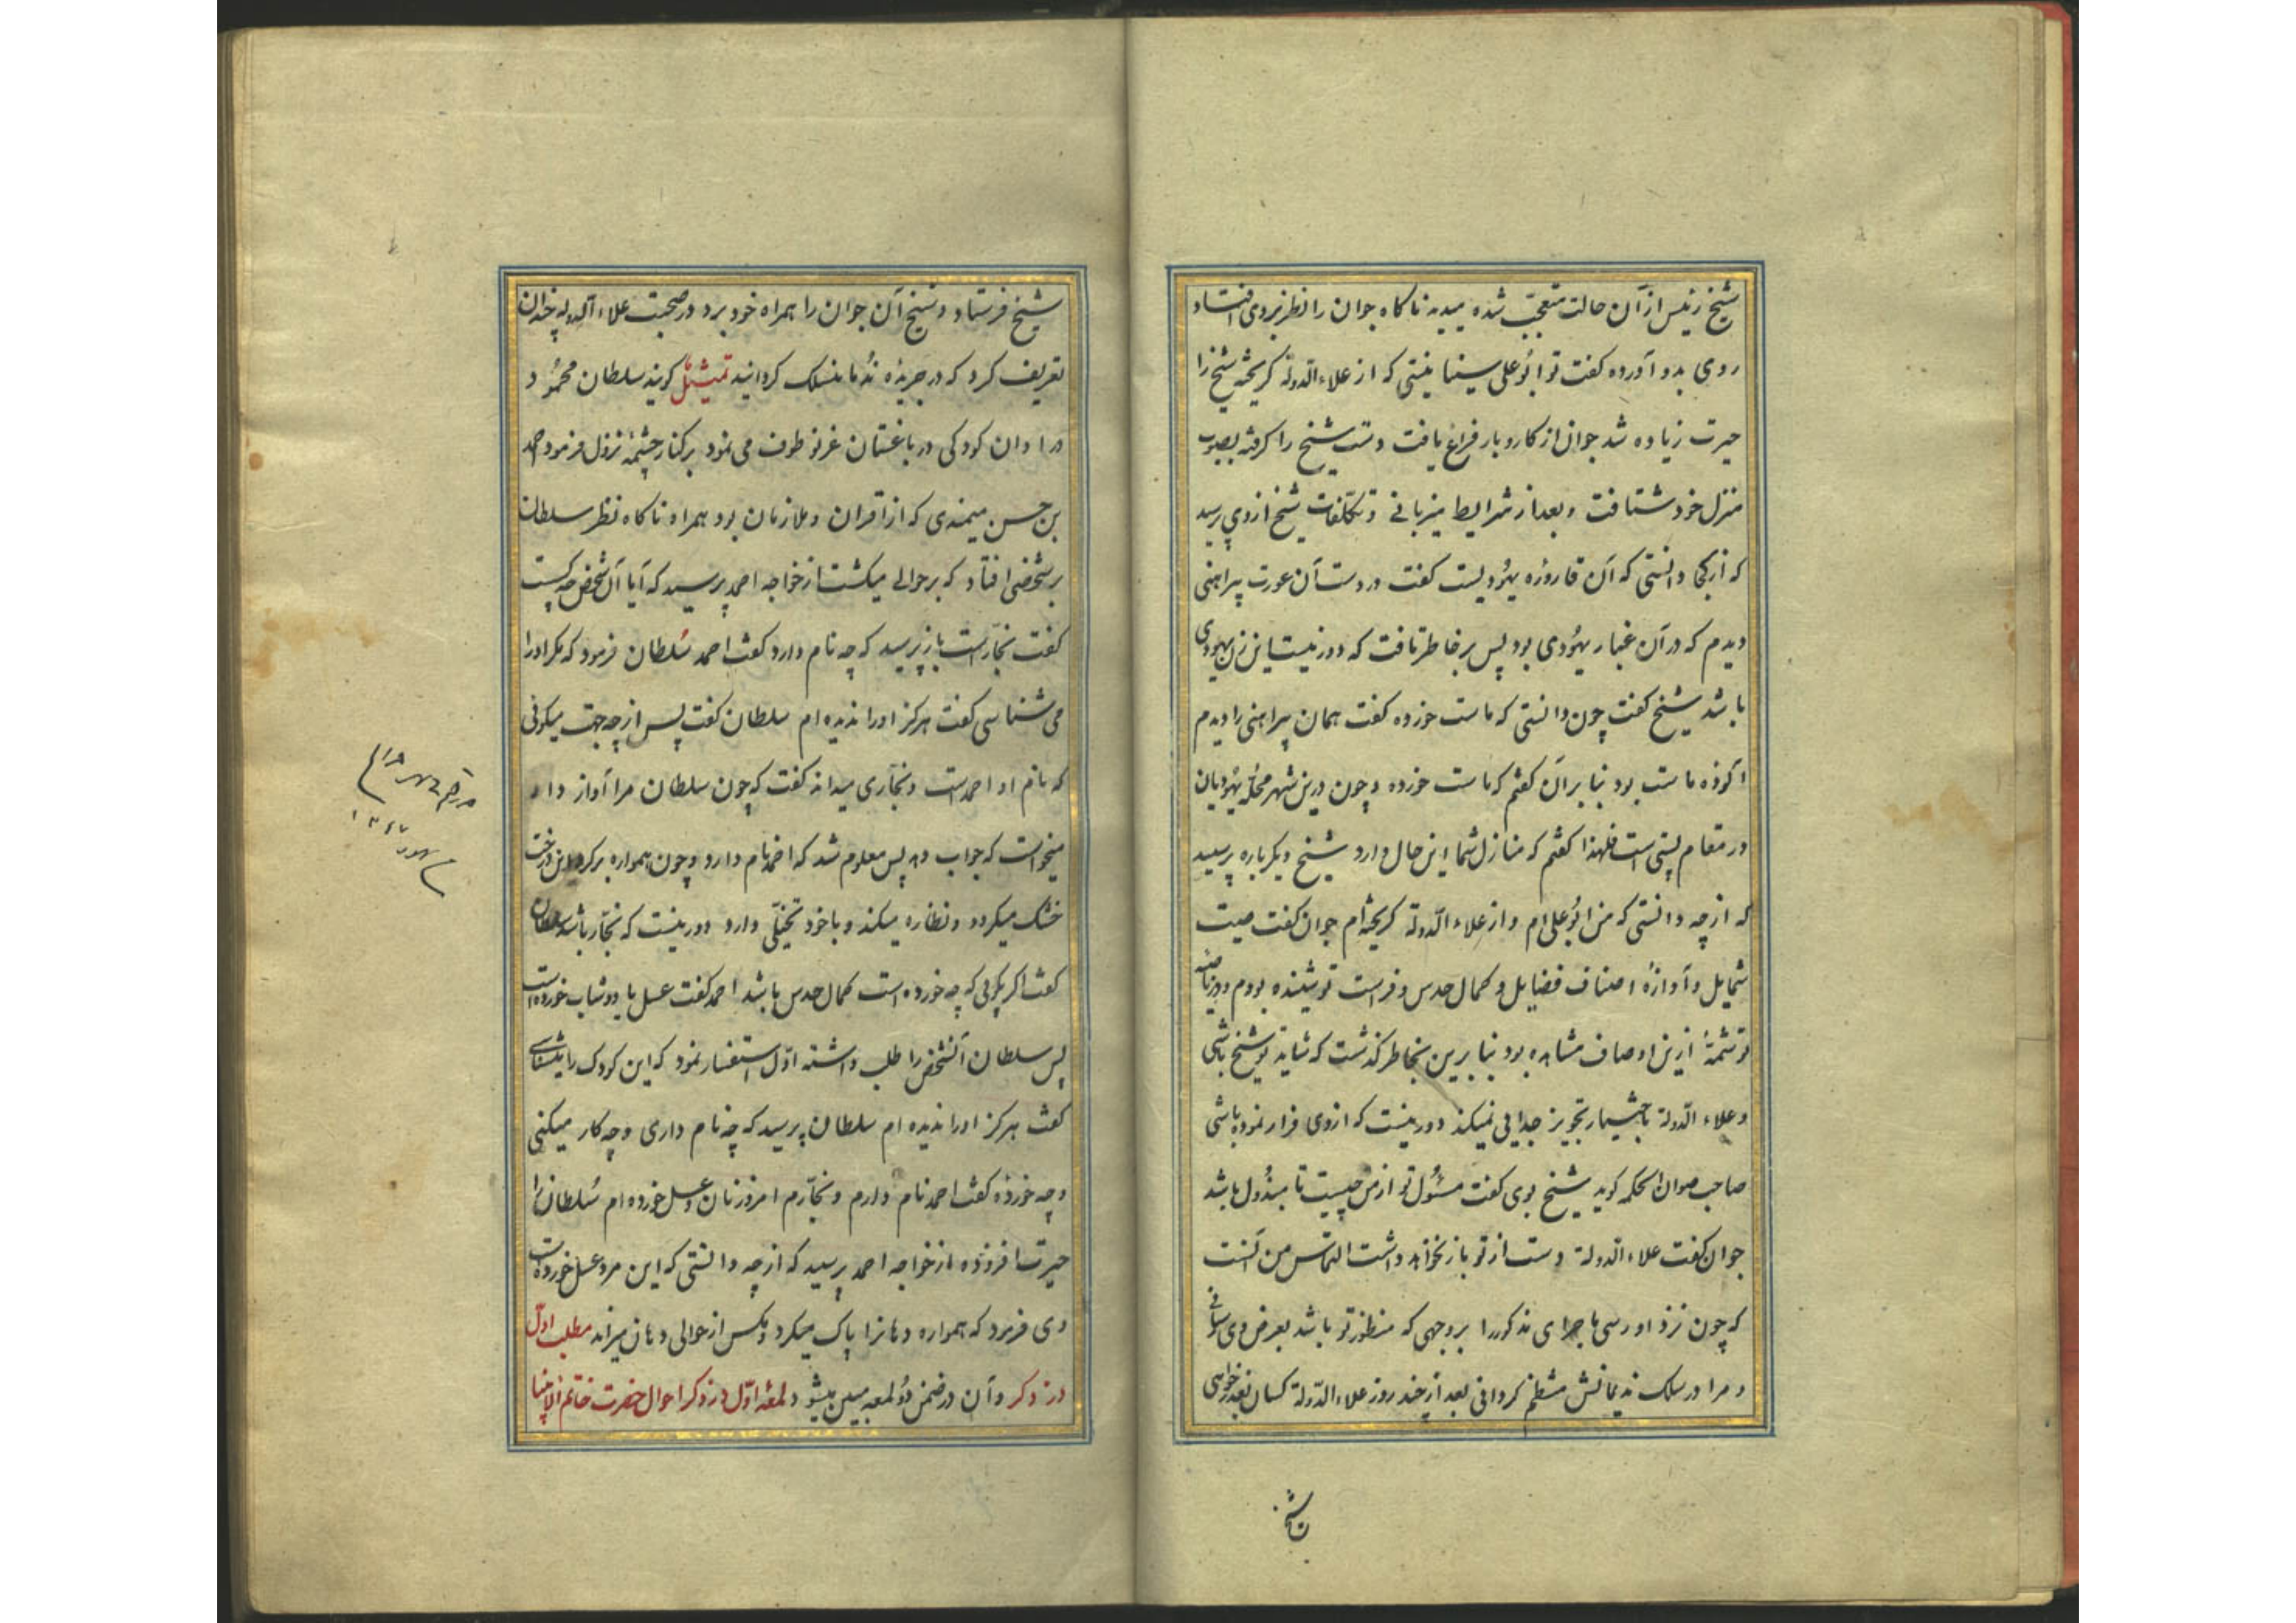 شیخ رئیس از آن حالت متعجّب شده میدید ناکاه جوان را نظر بروی افتاد
روی بدو آورده کفت تو ابُو علی سینا نیستی که از علاء الدّولة کریخته شیخ را
حیرت زیاده شد جوان از کار و بار فراغ یافت دست شیخ را کرفته بصوب
منزل خود شتافت و بعد از شرایط میزبانی و تکلّفات شیخ از وی پرسید
که از کجا دانستی که آن قاروره یهُودیست کفت در دست آن عورت پیراهنی
دیدم که در آن غبار یهُودی بود پس بر خاطر تافت که دور نیست این زن یهودی
باشد شیخ کفت چون دانستی که ماست خورده کفت همان پیراهنی را دیدم
آلوده ماست بود بنا بر آن کفتم که ماست خورده و چون درین شهر محلّه یهُودیان
در مقام پستی است فلهذا کفتم که منازل شما این حال دارد شیخ دیکر باره پرسید
که از چه دانستی که من ابُو علی ام و از علاء الدّولة کریخته ام جوان کفت صیت
شمایل و آوازهٔ اصناف فضایل و کمال حدس و فراست تو شنیده بودم و در ناصیه
تو شمّهٔ ازین اوصاف مشاهده بود بنا برین بخاطر کذشت که شاید تو شیخ باشی
و علاء الدّولة باختیار تجویز جدایی نمیکند دور نیست که از وی فرار نموده باشی
صاحب صوان الحکمه کوید شیخ بوی کفت مسئُول تو از من چیست تا مبذُول باشد
جوان کفت علاء الدولة دست از تو باز نخواهد داشت التماس من آنست
که چون نزد او رسی ماجرای مذکور را بر وجهی که منظور تو باشد بعرض وی رسانی
و مرا در سلک ندیمانش منتظم کردانی بعد از چند روز علاء الدّولة کسان بعذر خواهی
شیخ
شیخ فرستاد و شیخ آن جوان را همراه خود برد و در صحبت علاء الدوله چندان
تعریف کرد که در جریدهٔ نُدما منسلک کردانید تمثیل کویند سلطان محمُود
در اوان کودکی در باغستان غزنو طوف می نمود بر کنار چشمهٔ نزول فرمود احمد
بن حسن میمندی که از اقران و ملازمان بود همراه ناکاه نظر سلطان
بر شخصی افتاد که بر حوالی میکشت از خواجه احمد پرسید که آیا آن شخص چه کس است
کفت نجّار است باز پرسید که چه نام دارد کفت احمد سُلطان فرمود که مکر او را
می شناسی کفت هرکز او را ندیده ام سلطان کفت پس از چه جهت میکوئی
که نام او احمد است و نجّاری میداند کفت که چون سلطان مرا آواز داد
میخواست که جواب دهد پس معلوم شد که احمد نام دارد و چون همواره بر کرد این درخت
خشک میکردد و نظاره میکند و با خود تخیّلی دارد دور نیست که نجّار باشد سلطان
کفت اکر بکوئی که چه خورده است کمال حدس باشد احمد کفت عسل یا دوشاب خورده است
پس سلطان آنشخص را طلب داشته اوّل استفسار نمود که این کودک را میشناسی
کفت هرکز او را ندیده ام سلطان پرسید که چه نام داری و چه کار میکنی
و چه خوردهٔ کفت احمد نام دارم و نجّارم امروز نان و عسل خورده ام سُلطان را
حیرت افزوده از خواجه احمد پرسید که از چه دانستی که این مرد عسل خورده است
وی فرمود که همواره دهانرا پاک میکرد و مکس از حوالی دهان میراند مطلب اوّل
در ذکر و آن در ضمن دُو لمعه مبین میشود لمعه اوّل در ذکر احوال حضرت خاتم الانبیا